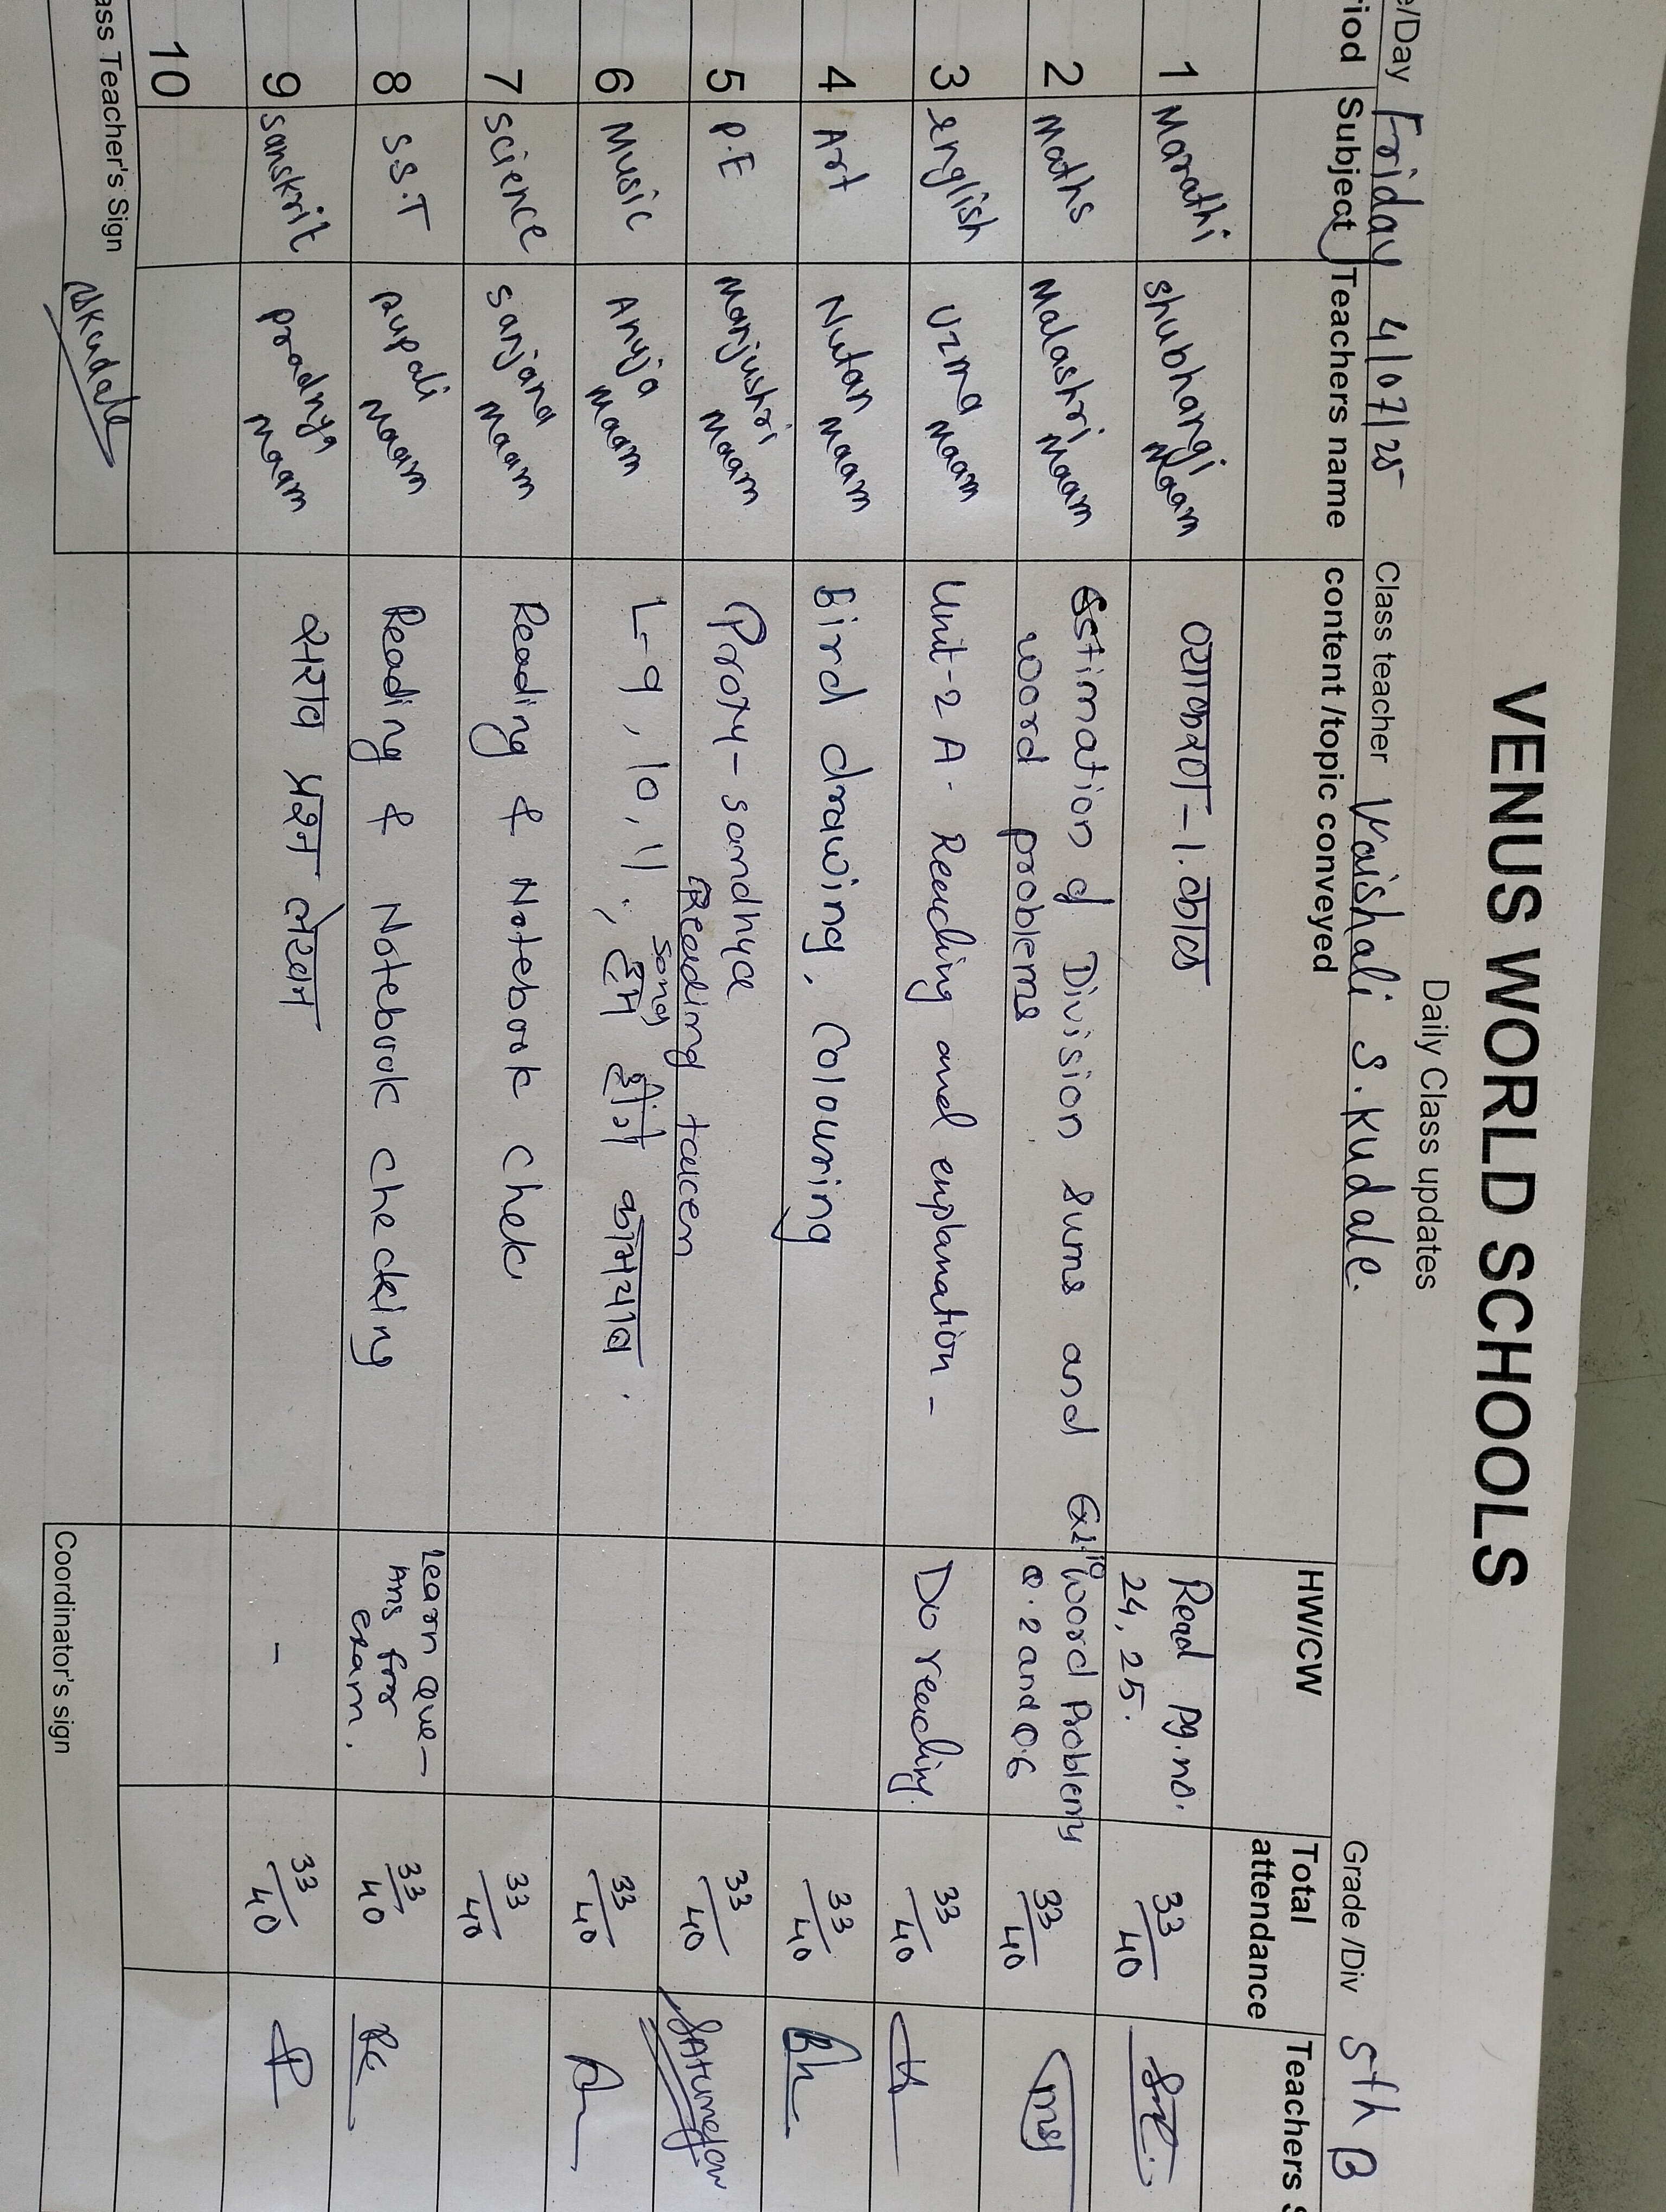 VENUS WORLD SCHOOLS
Daily Class updates
e/Day Friday 4/07/25 Class teacher Vaishali S. Kudale. Grade /Div 5th B
riod Subject Teachers name content /topic conveyed HW/CW Total attendance Teachers S
1 Marathi Shubhangi Maam व्याकरण - 1. काळ Read pg. no. 24, 25.  33/40
2 Maths Malashri Maam Estimation of Division sums and word problems Ex 10 Word Problems Q. 2 and Q.6 33/40
3 English Uzma Maam Unit-2 A. Reading and explanation - Do reading. 33/40
4 Art Nutan Maam Bird drawing, Colouring 33/40
5 P.E Manjushri Maam Proxy - sandhya Reading taken 33/40
6 Music Anuja Maam L-9, 10, 11, song हम होंगे कामयाब. 33/40
7 science sanjana Maam Reading & Notebook chek 33/40
8 S.S.T Rupali Maam Reading & Notebook checking Learn que- Ans for exam. 33/40
9 sanskrit pradnya Maam सराव प्रश्न लेखन - 33/40
10
ass Teacher's Sign Vskudale Coordinator's sign